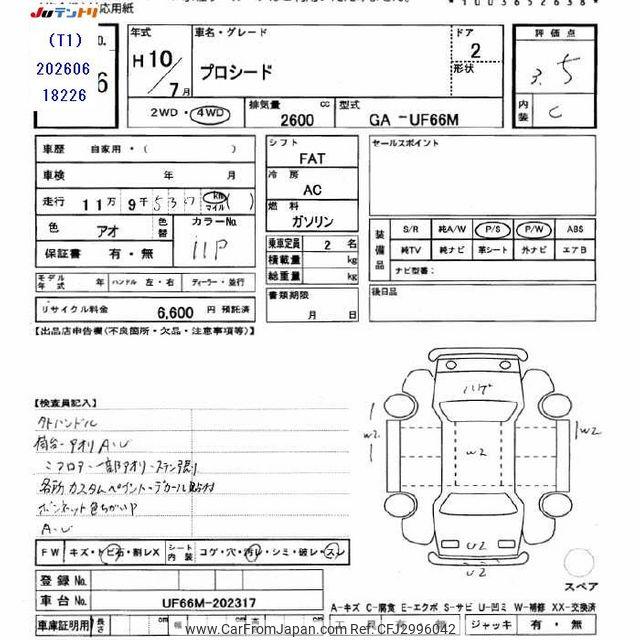 応用紙
*1003652638*
JUテントリ
(T1)
202606
18226
No.
6
年式
H10/7月
車名・グレード
プロシード
ドア
2
形状
評価点
3.5
内装
C
2WD・4WD
排気量
2600 cc
型式
GA-UF66M
車歴 自家用・( )
車検 年 月
走行 11万9千537 km マイル ( )
色 アオ
色替
カラーNo.
11P
保証書 有・無
モデル年式 年 ハンドル 左・右 ディーラー・並行
リサイクル料金 6,600 円 預託済
シフト
FAT
冷房
AC
燃料
ガソリン
乗車定員 2 名
積載量 kg
総重量 kg
書類期限
月 日
セールスポイント
装備品
S/R 純A/W P/S P/W ABS
純TV 純ナビ 革シート 外ナビ エアB
ナビ型番:
後日品
【出品店申告欄(不良箇所・欠品・注意事項等)】
【検査員記入】
外ハンドル
荷台・アオリA・U
各所カスタムペイント・デカール貼付
ボンネット色ちがい
A・U
FW キズ・トビ石・割レX
シート内装 コゲ・穴・汚レ・シミ・破レ・スレ
登録No.
車台No. UF66M-202317
車庫証明用 長さ 幅 高さ
ハゲ
W2
W2
W2
U2
U2
スペア
A-キズ C-腐食 E-エクボ S-サビ U-凹ミ W-補修 XX-交換済
工具 有・無 ジャッキ 有・無
www.CarFromJapan.com Ref. No: CFJ2996042